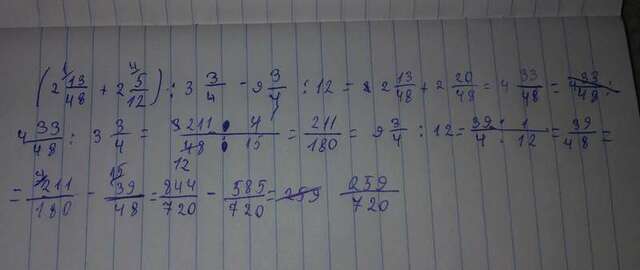 (2 13/48 + 2 5/12) : 3 3/4 - 9 3/4 : 12 = 2 13/48 + 2 20/48 = 4 33/48 =
4 33/48 : 3 3/4 = 211 · 4 / 48 · 15 = 211/180 = 9 3/4 : 12 = 39/4 · 1/12 = 39/48 =
= 211/180 - 39/48 = 844/720 - 585/720 = 259 259/720